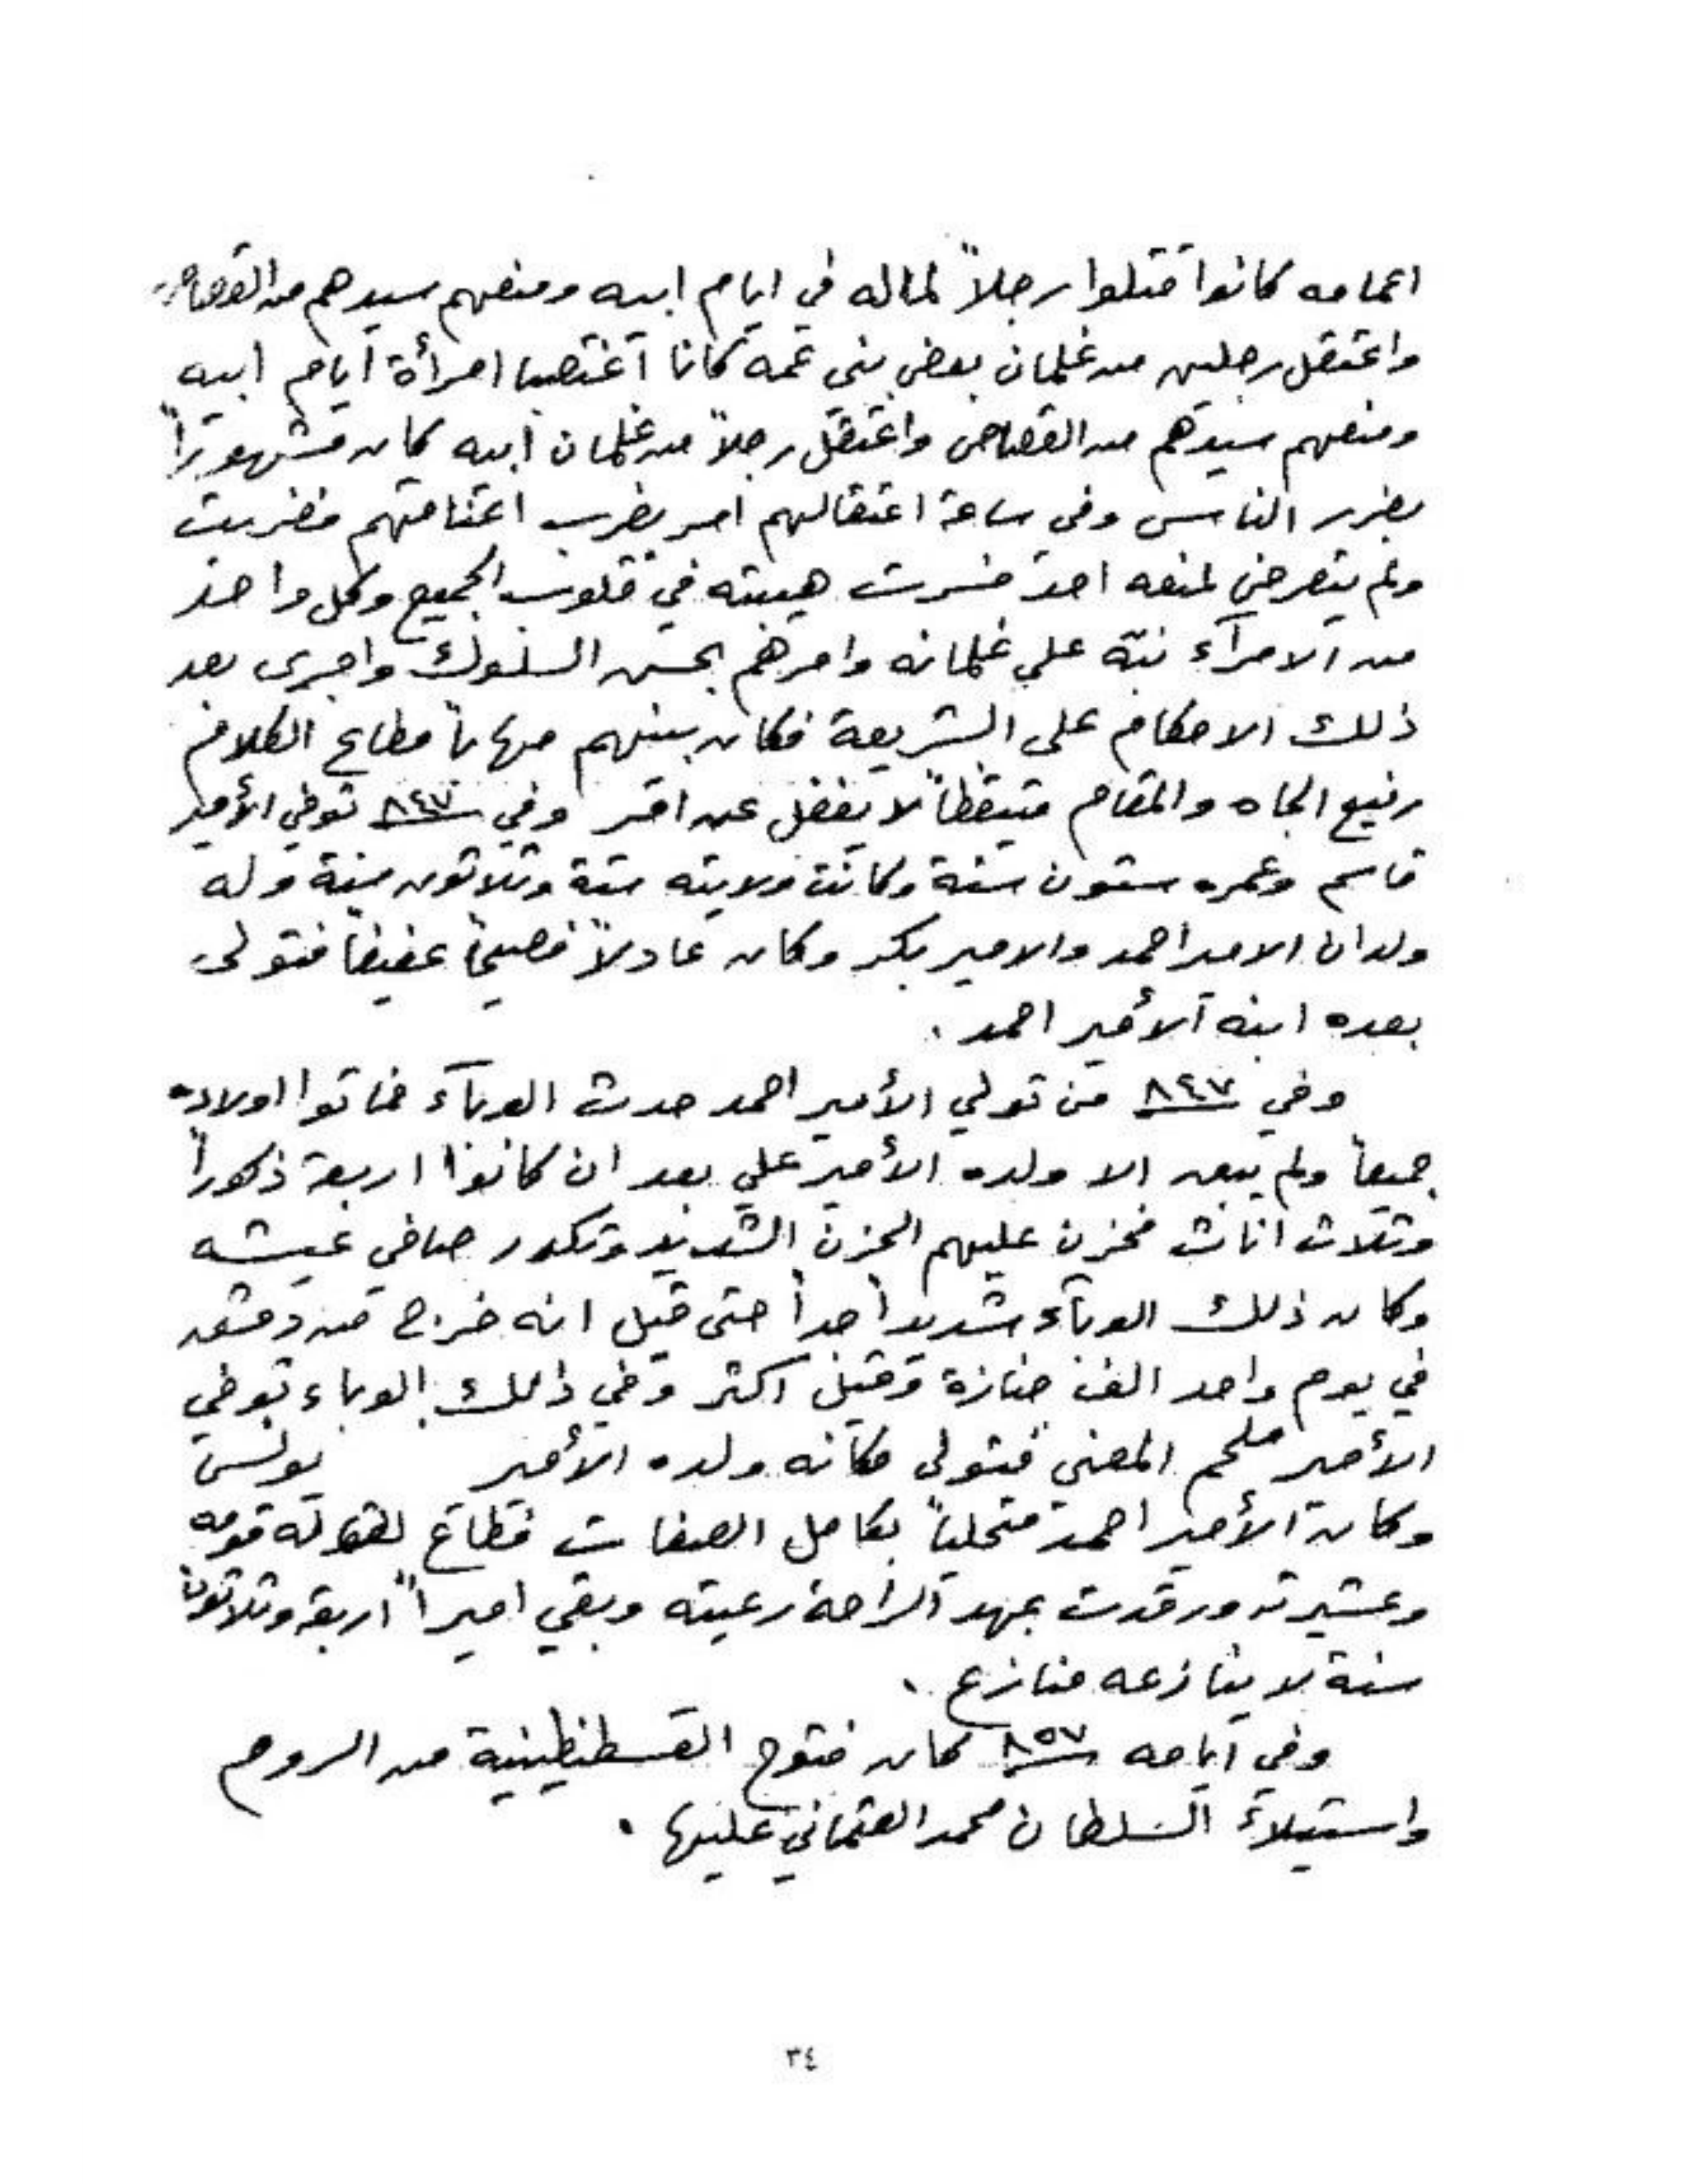 اعمامه كانوا قتلوا رجلاً لماله في ايام ابيه ومنعهم سيدهم من القصاص
واعتقل رجلين من غلمان بعض بني عمه كانا اغتصبا امرأة ايام ابيه
ومنعهم سيدهم من القصاص واعتقل رجلاً من غلمان ابيه كان مشهوراً
بضرر الناس وفي ساعة اعتقالهم امر بضرب اعناقهم فضربت
ولم يتعرض لمنعه احد فسرت هيبته في قلوب الجميع وكل واحد
من الامرآء نبّه على غلمانه وامرهم بحسن السلوك واجرى بعد
ذلك الاحكام على الشريعة فكان بينهم مهاباً مطاع الكلام
رفيع الجاه والمقام متيقظاً لا يغفل عن امر وفي ٨٤٧ توفي الأمير
قاسم وعمره ستون سنة وكانت ولايته ستة وثلاثون سنة وله
ولدان الامير احمد والامير بكر وكان عادلاً فصيحاً عفيفاً فتولى
بعده ابنه الأمير احمد .
وفي ٨٤٧ من تولي الأمير احمد حدث الوبآء فماتوا اولاده
جميعاً ولم يبق الا ولده الأمير علي بعد ان كانوا اربعة ذكوراً
وثلاث اناث فحزن عليهم الحزن الشديد وتكدر صافي عيشه
وكان ذلك الوبآء شديداً جداً حتى قيل انه خرج من دمشق
في يوم واحد الف جنازة وقيل اكثر وفي ذلك الوباء توفي
الأمير ملحم المعني فتولى مكانه ولده الأمير يونس
وكان الأمير احمد متحلياً بكامل الصفات فطاع لقوله قومه
وعشيرته ورقدت بمهد الراحة رعيته وبقي اميراً اربعة وثلاثون
سنة لا ينازعه منازع .
وفي ايامه ٨٥٧ كان فتوح القسطنطينية من الروم
واستيلآء السلطان محمد العثماني عليها .
٣٤